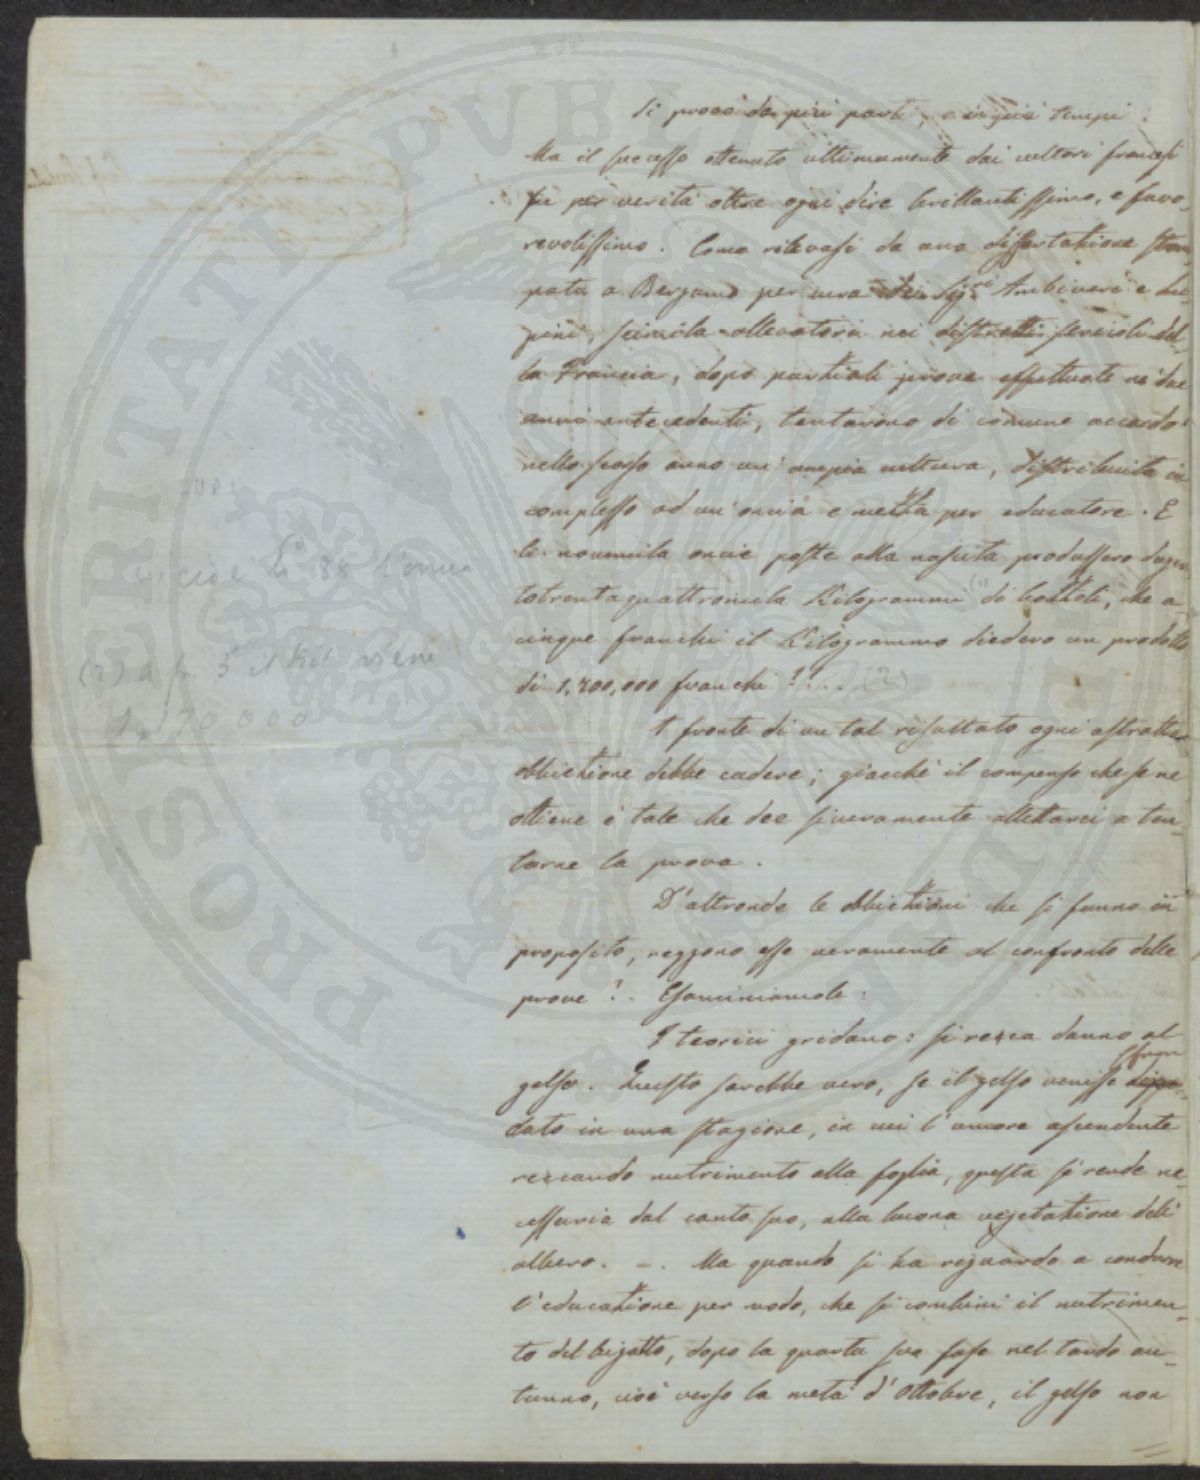 Si provò da più parti, e in più tempi:
Ma il successo ottenuto ultimamente dai cultori francesi
fu per verità oltre ogni dire brillantissimo, e favo-
revolissimo. Come rilevasi da una dissertazione stam
pata a Bergamo per cura dei Sig.ri Ambiveri e
allevatori nei distretti del-
la Francia, dopo parziali prove effettuate ne' due
anni antecedenti, tentarono di comune accordo
nello scorso anno un' ampia cultura, distribuita in
complesso ad un' oncia e mezza per educatore. E
le novemila oncie poste alla nascita produssero dugen
totrentaquattromila Kilogrammi (1) di bozzoli, che a
cinque franchi il Kilogrammo diedero un prodotto
di 1,200,000 franchi?!... (2)
cioè 38 l'oncia
(2) a fr. 5 il Kil viene
1,170000
A fronte di un tal risultato ogni astratta
obbiezione debbe cadere; giacchè il compenso che se ne
ottiene è tale che dee sicuramente allettarci a ten-
tarne la prova.
D'altronde le obbiezioni che si fanno in
proposito, reggono esse veramente al confronto delle
prove?. Esaminiamole:
I teorici gridano: si reca danno al
gelso. Questo sarebbe vero, se il gelso venisse sfron
dato in una stagione, in cui l'umore ascendente
recando nutrimento alla foglia, questa si rende ne-
cessaria dal canto suo, alla buona vegetazione dell'
albero. -. Ma quando si ha riguardo a condurre
l'educazione per modo, che si combini il nutrimen-
to del bigatto, dopo la quarta sua fase nel tardo au-
tunno, cioè verso la metà d'Ottobre, il gelso non